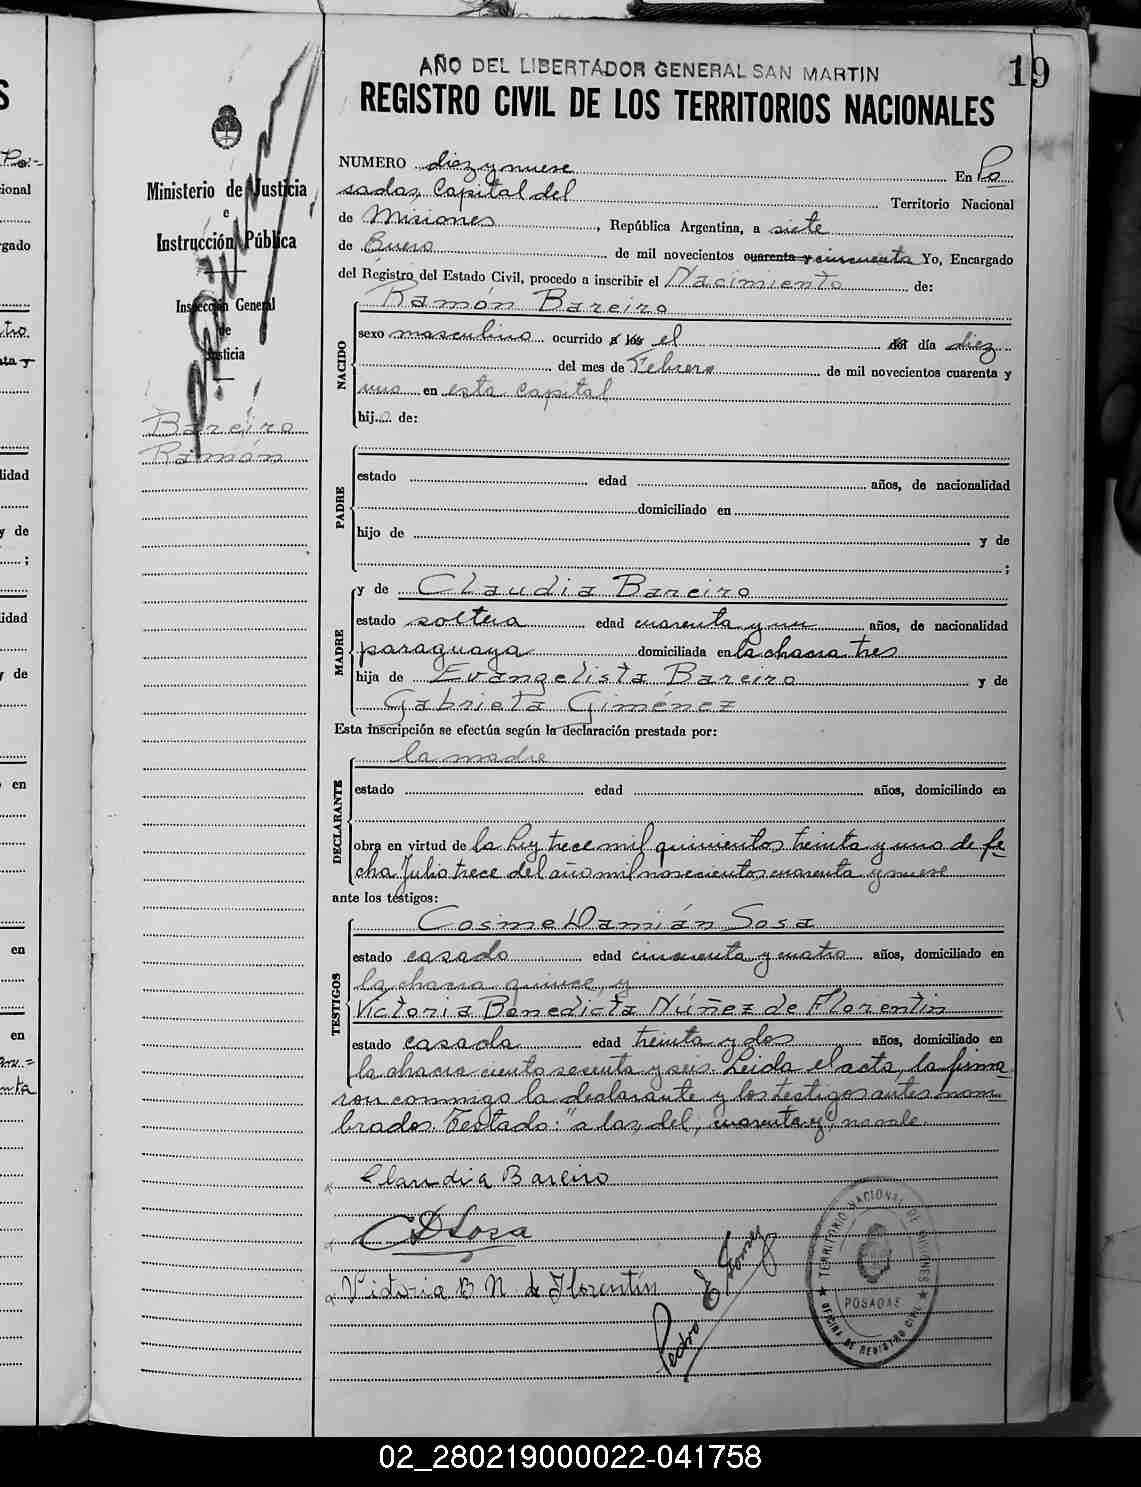 AÑO DEL LIBERTADOR GENERAL SAN MARTIN
19
REGISTRO CIVIL DE LOS TERRITORIOS NACIONALES
Ministerio de Justicia
e
Instrucción Pública
Inspección General
de
Justicia
Bareiro
Ramón
NUMERO diez y nueve En Po
sadas, Capital del Territorio Nacional
de Misiones, República Argentina, a siete
de Enero de mil novecientos cuarenta y cincuenta Yo, Encargado
del Registro del Estado Civil, procedo a inscribir el Nacimiento de:
NACIDO
Ramón Bareiro
sexo masculino ocurrido a las el del día diez
del mes de Febrero de mil novecientos cuarenta y
uno en esta capital
hijo de:
PADRE
estado edad años, de nacionalidad
domiciliado en
hijo de y de
;
MADRE
y de Claudia Bareiro
estado soltera edad cuarenta y un años, de nacionalidad
paraguaya domiciliada en la chacra tres
hija de Evangelista Bareiro y de
Gabriela Giménez
Esta inscripción se efectúa según la declaración prestada por:
DECLARANTE
la madre
estado edad años, domiciliado en
obra en virtud de la Ley trece mil quinientos treinta y uno de fe
cha Julio trece del año mil novecientos cuarenta y nueve
ante los testigos:
TESTIGOS
Cosme Damián Sosa
estado casado edad cincuenta y cuatro años, domiciliado en
la chacra quince, y
Victoria Benedicta Núñez de Florentin
estado casada edad treinta y dos años, domiciliado en
la chacra ciento sesenta y seis. Leida el acta, la firma
ron conmigo la declarante y los testigos antes nom
brados. Testado: "a las, del, cuarenta y, no vale.
Claudia Bareiro
CDSosa
Victoria B N de Florentín
Pedro E Gomez
TERRITORIO NACIONAL DE MISIONES
POSADAS
OFICINA DE REGISTRO CIVIL
02_280219000022-041758